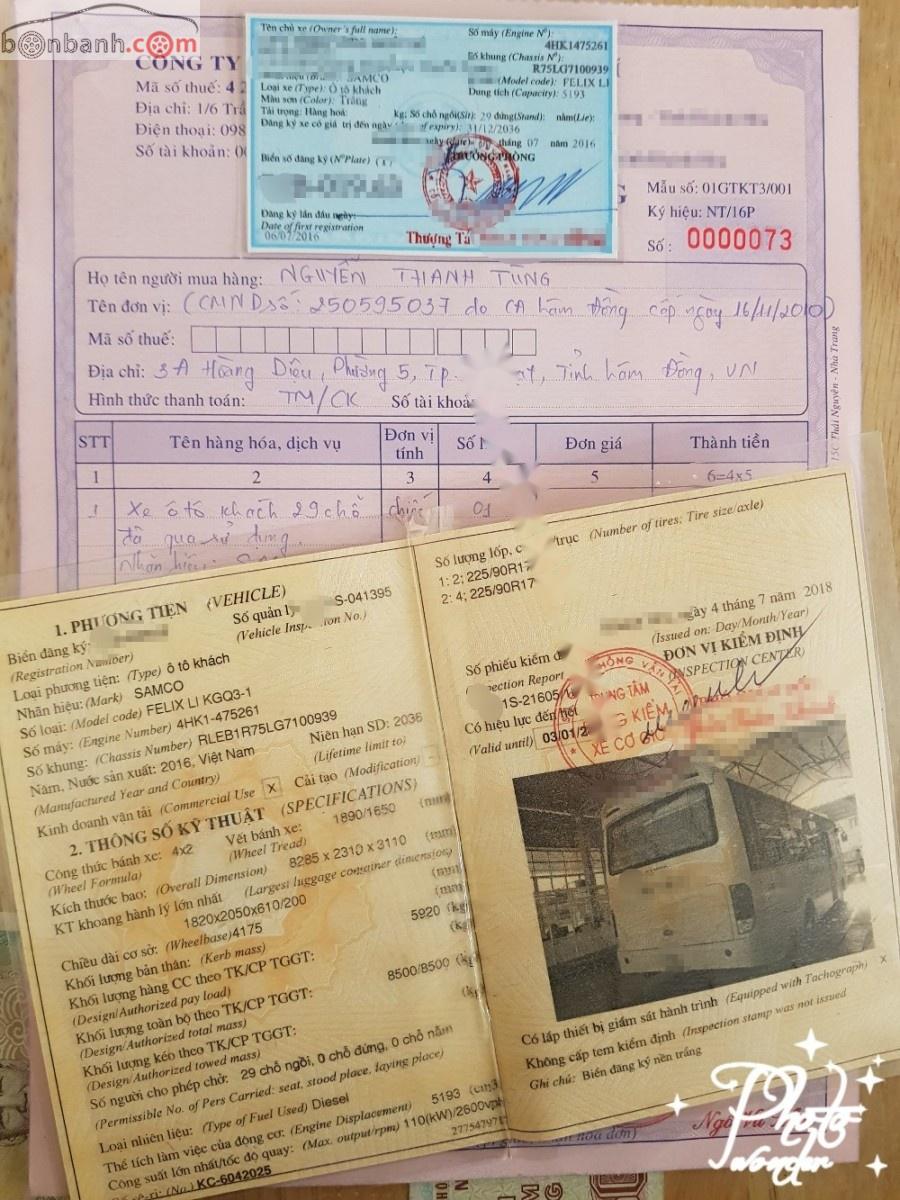 bonbanh.com
CÔNG TY
Mã số thuế: 4 2
Địa chỉ: 1/6 Trầ
Điện thoại: 098
Số tài khoản: 0
Tên chủ xe (Owner's full name):
Số máy (Engine Nº):
4HK1475261
Số khung (Chassis Nº):
R75LG7100939
SAMCO
(Model code): FELIX LI
Loại xe (Type): Ô tô khách
Dung tích (Capacity): 5193
Màu sơn (Color): Trắng
Tải trọng: Hàng hoá: kg; Số chỗ ngồi(Sit): 29 đứng(Stand): nằm(Lie):
Đăng ký xe có giá trị đến ngày of expiry): 31/12/2036
07 năm 2016
TRƯỞNG PHÒNG
Biển số đăng ký (Nº Plate)
Đăng ký lần đầu ngày:
Date of first registration
06/07/2016
Thượng Tá
Mẫu số: 01GTKT3/001
Ký hiệu: NT/16P
Số: 0000073
Họ tên người mua hàng: NGUYỄN THANH TÙNG
Tên đơn vị: (CMND số: 250595037 do CA Lâm Đồng cấp ngày 16/11/2010)
Mã số thuế:
Địa chỉ: 3A Hoàng Diệu, Phường 5, Tp. ạt, Tỉnh Lâm Đồng, VN
Hình thức thanh toán: TM/CK Số tài khoả
STT Tên hàng hóa, dịch vụ Đơn vị tính Số Đơn giá Thành tiền
1 2 3 4 5 6=4x5
1 Xe ô tô khách 29 chỗ chiếc 01
đã qua sử dụng.
Nhãn hiệu:
1. PHƯƠNG TIỆN (VEHICLE)
Biển đăng ký:
(Registration Number)
Số quản lý S-041395
(Vehicle Inspection No.)
Loại phương tiện: (Type) Ô tô khách
Nhãn hiệu: (Mark) SAMCO
Số loại: (Model code) FELIX LI KGQ3-1
Số máy: (Engine Number) 4HK1-475261
Số khung: (Chassis Number) RLEB1R75LG7100939
Năm, Nước sản xuất: 2016, Việt Nam Niên hạn SD: 2036
(Manufactured Year and Country) (Lifetime limit to)
Kinh doanh vận tải (Commercial Use X Cải tạo (Modification)
2. THÔNG SỐ KỸ THUẬT (SPECIFICATIONS)
Công thức bánh xe: 4x2 Vết bánh xe: 1890/1650 (mm)
(Wheel Formula) (Wheel Tread)
Kích thước bao: (Overall Dimension) 8285 x 2310 x 3110 (mm)
KT khoang hành lý lớn nhất (Largest luggage container dimension)
1820x2050x610/200 (mm)
Chiều dài cơ sở: (Wheelbase)4175 (mm)
Khối lượng bản thân: (Kerb mass) 5920 (kg
Khối lượng hàng CC theo TK/CP TGGT:
(Design/Authorized pay load)
Khối lượng toàn bộ theo TK/CP TGGT: 8500/8500 (kg
(Design/Authorized total mass)
Khối lượng kéo theo TK/CP TGGT: (kg
(Design/Authorized towed mass)
Số người cho phép chở: 29 chỗ ngồi, 0 chỗ đứng, 0 chỗ nằm
(Permissible No. of Pers Carried: seat, stood place, laying place)
Loại nhiên liệu: (Type of Fuel Used) Diesel
Thể tích làm việc của động cơ: (Engine Displacement) 5193 (cm3
Công suất lớn nhất/tốc độ quay: (Max. output/rpm) 110(kW)/2600vph
(No.) KC-6042025
Số lượng lốp, c trục (Number of tires: Tire size/axle)
1: 2; 225/90R17
2: 4; 225/90R17
gày 4 tháng 7 năm 2018
(Issued on: Day/Month/Year)
Số phiếu kiểm đ
ĐƠN VỊ KIỂM ĐỊNH
(INSPECTION CENTER)
pection Report
1S-21605/
Có hiệu lực đến hết
(Valid until) 03/01/2
TRUNG TÂM
ĐĂNG KIỂM
XE CƠ GIỚI
Có lắp thiết bị giám sát hành trình (Equipped with Tachograph) X
Không cấp tem kiểm định (Inspection stamp was not issued
Ghi chú: Biển đăng ký nền trắng
Photo
Wonder